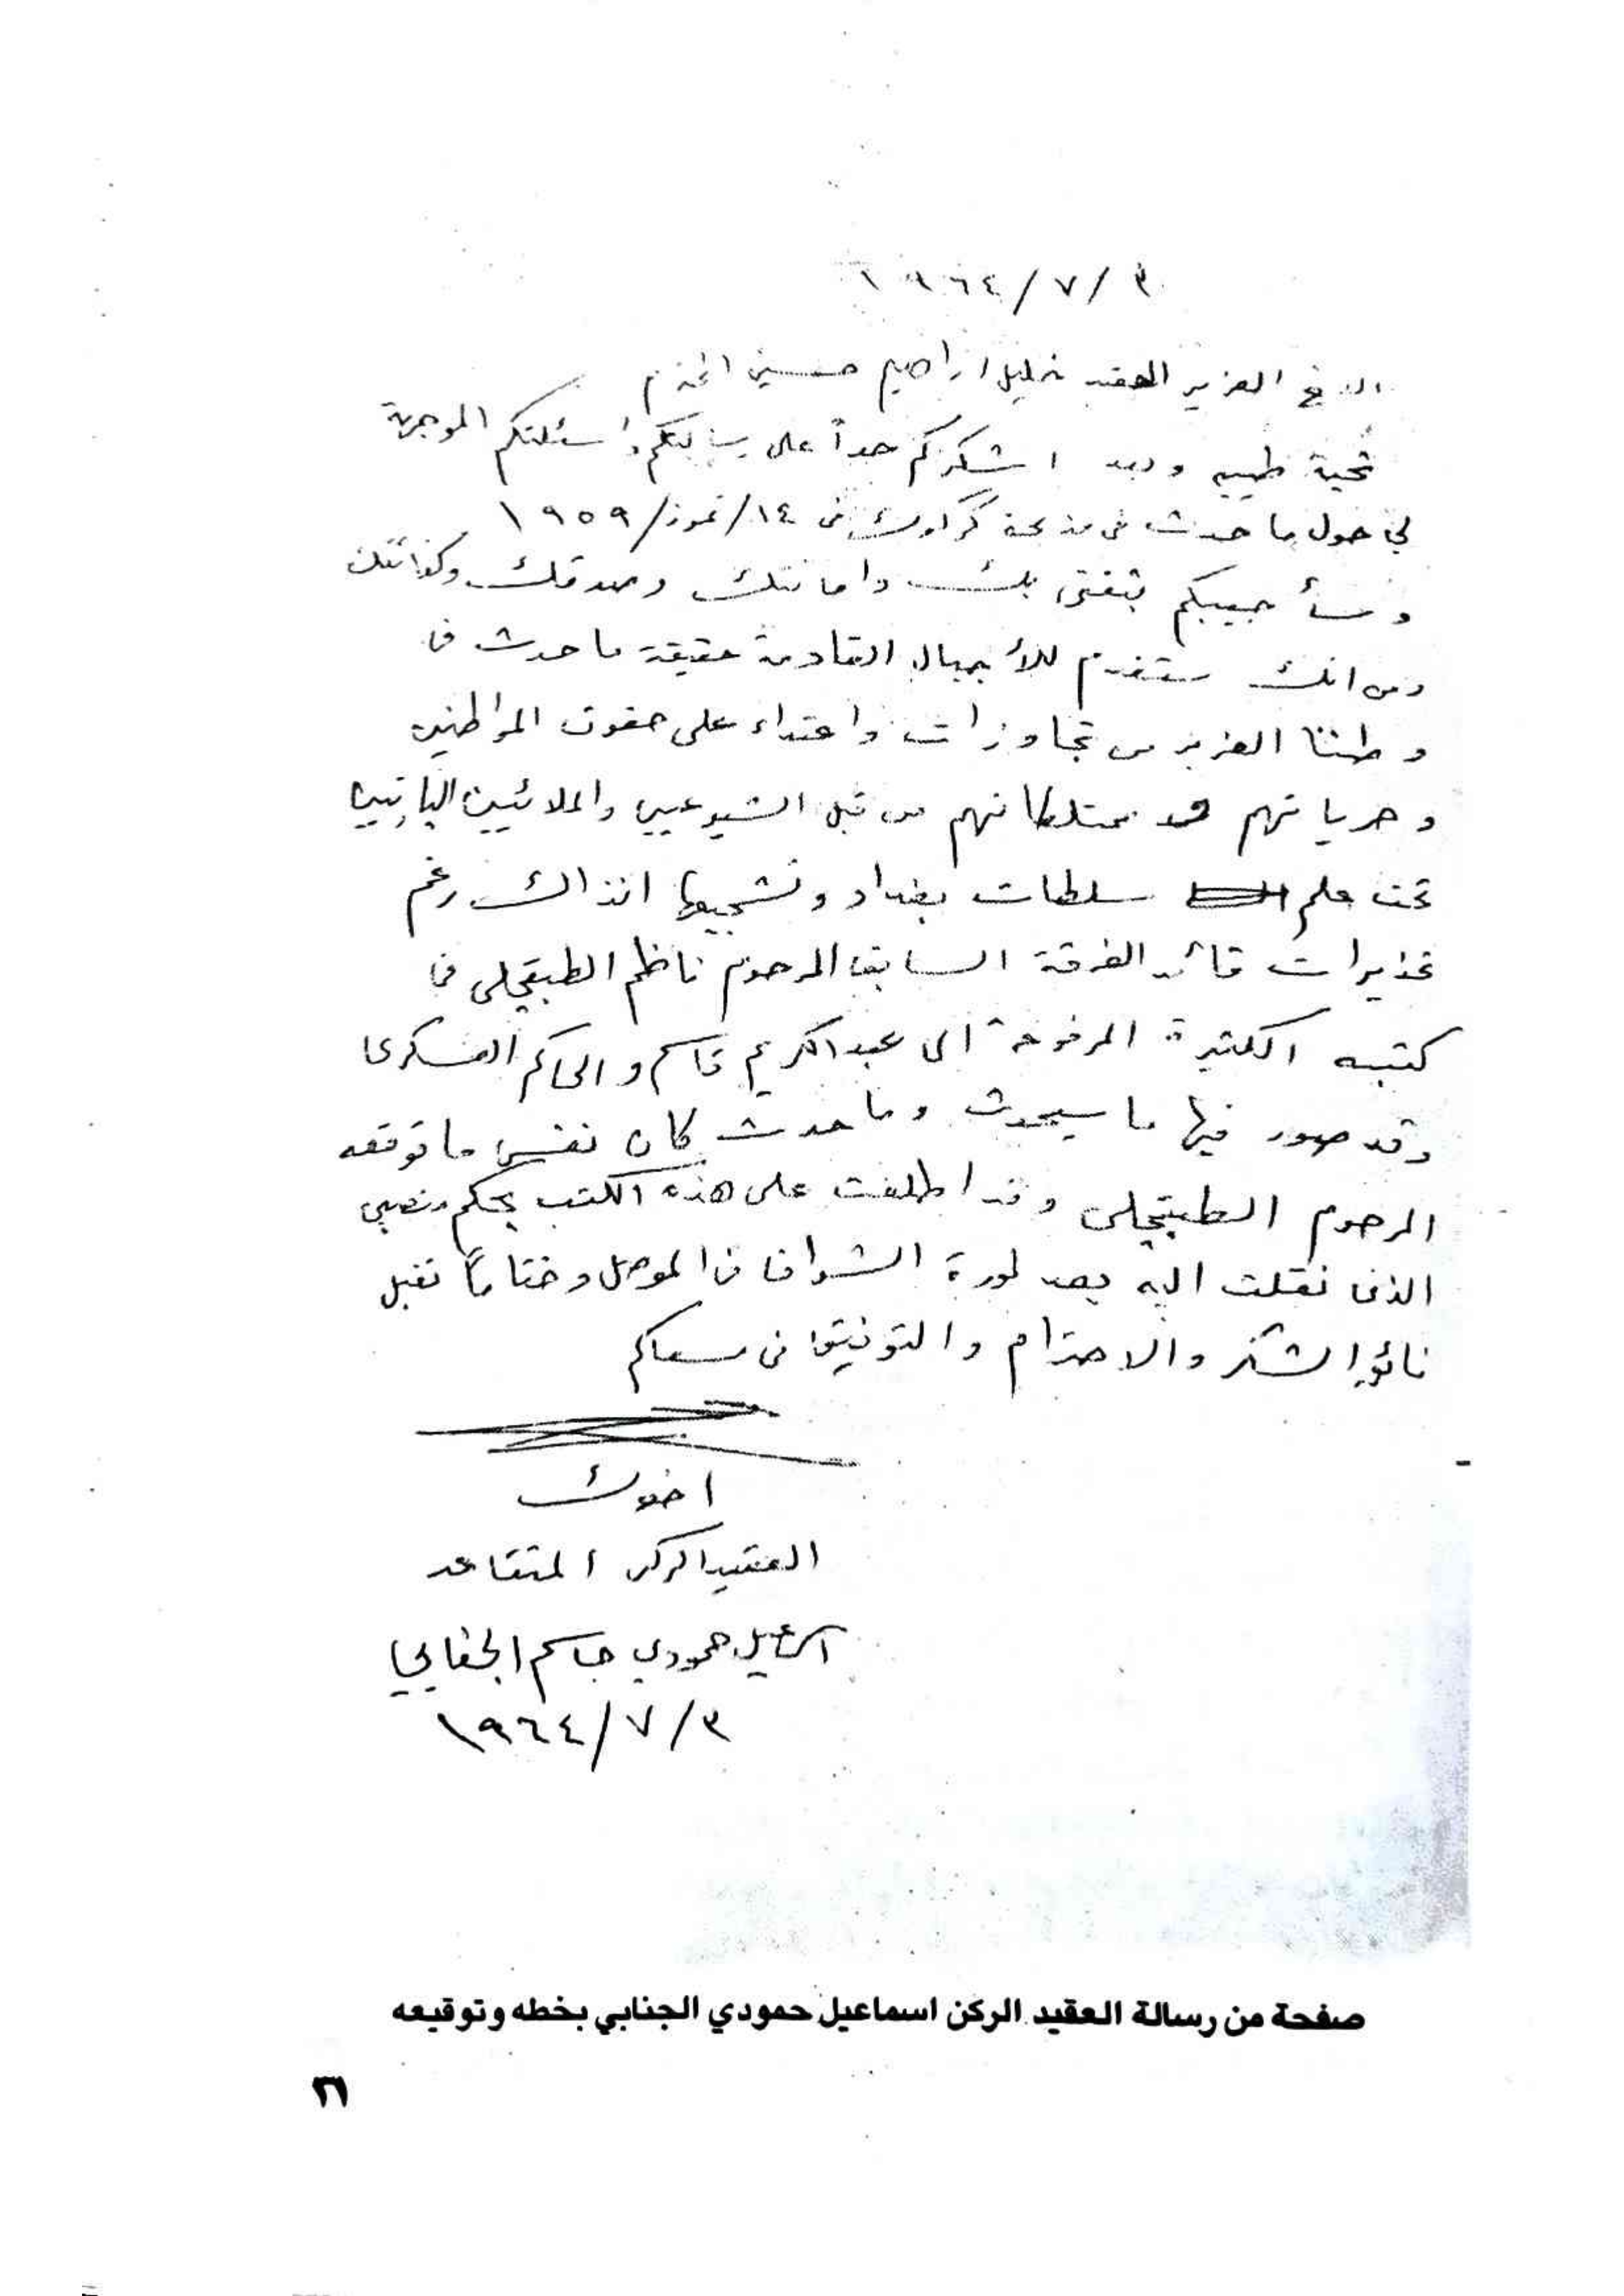 ١٩٦٤/٧/٣
الاخ العزيز العقيد خليل ابراهيم حسين المحترم
تحية طيبه وبعد اشكركم جداً على رسالتكم واسئلتكم الموجهة
لي حول ما حدث في مذبحة كركوك في ١٤/تموز/١٩٥٩
وسأجيبكم لثقتي بك وامانتك وصدقك وكفائتك
ومن انك ستقدم للأجيال القادمة حقيقة ما حدث في
وطننا العزيز من تجاوزات واعتداء على حقوق المواطنين
وحرياتهم وممتلكاتهم من قبل الشيوعيين والملائيين البارتيين
تحت علم سلطات بغداد وتشجيعها انذاك رغم
تحذيرات قائد الفرقة السابق المرحوم ناظم الطبقجلي في
كتبه الكثيرة المرفوعة الى عبد الكريم قاسم والحاكم العسكري
وقد صور فيها ما سيحدث وما حدث كان نفس ما توقعه
المرحوم الطبقجلي وقد اطلعت على هذه الكتب بحكم منصبي
الذي نقلت اليه بعد ثورة الشواف في الموصل وختاماً تقبل
فائق الشكر والاحترام والتوفيق في مسعاكم
اخوك
العقيد الركن المتقاعد
اسماعيل حمودي جاسم الجنابي
١٩٦٤/٧/٣
صفحة من رسالة العقيد الركن اسماعيل حمودي الجنابي بخطه وتوقيعه